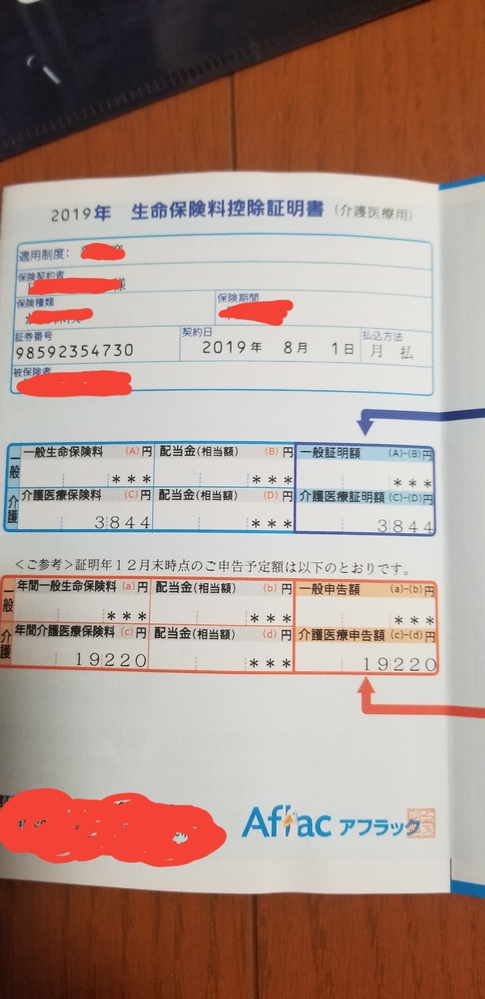 2019年 生命保険料控除証明書 (介護医療用)
適用制度:
保険契約者
様
保険種類 保険期間
証券番号 契約日 払込方法
98592354730 2019年 8月 1日 月 払
被保険者
一般 一般生命保険料 (A)円 配当金(相当額) (B)円 一般証明額 (A)-(B)円
*** *** ***
介護 介護医療保険料 (C)円 配当金(相当額) (D)円 介護医療証明額 (C)-(D)円
3844 *** 3844
<ご参考>証明年12月末時点のご申告予定額は以下のとおりです。
一般 年間一般生命保険料 (a)円 配当金(相当額) (b)円 一般申告額 (a)-(b)円
*** *** ***
介護 年間介護医療保険料 (c)円 配当金(相当額) (d)円 介護医療申告額 (c)-(d)円
19220 *** 19220
Aflac アフラック